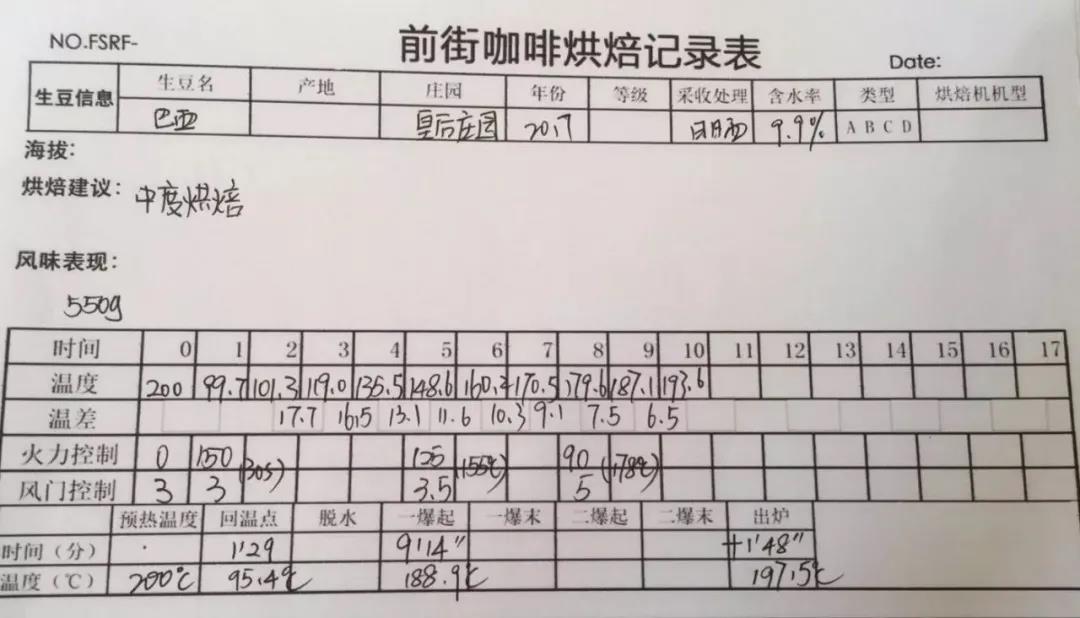 NO.FSRF-
前街咖啡烘焙记录表
Date:
生豆信息 生豆名 产地 庄园 年份 等级 采收处理 含水率 类型 烘焙机机型
巴亚 皇后庄园 2017 日晒 9.9% A B C D
海拔:
烘焙建议: 中度烘焙
风味表现:
550g
时间 0 1 2 3 4 5 6 7 8 9 10 11 12 13 14 15 16 17
温度 200 99.7 101.3 119.0 135.5 148.6 160.2 170.5 179.6 187.1 193.6
温差 17.7 16.5 13.1 11.6 10.3 9.1 7.5 6.5
火力控制 0 150 (30s) 125 (155℃) 90 (178℃)
风门控制 3 3 3.5 5
预热温度 回温点 脱水 一爆起 一爆末 二爆起 二爆末 出炉
时间（分） 1'29 9'14" +1'48"
温度（℃） 200℃ 95.4℃ 188.9℃ 197.5℃